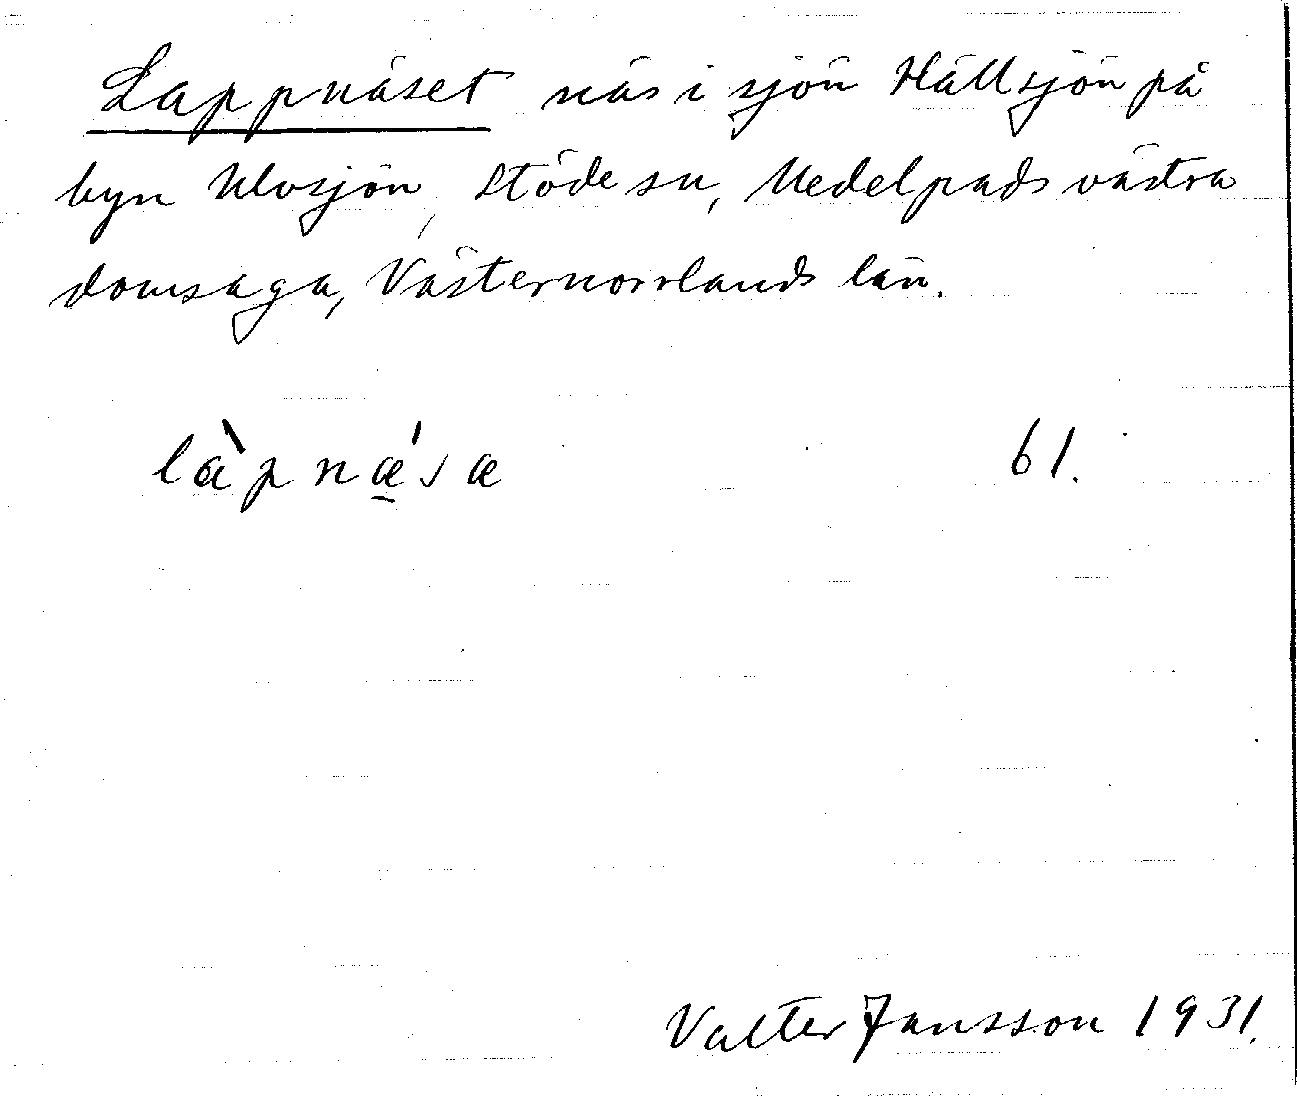 Lappnäset näs i sjön Hällsjön på
byn Ulvsjön, Stöde sn, Medelpads västra
domsaga, Västernorrlands län.
làpnǽ̱sa 61.
Valter Jansson 1931.